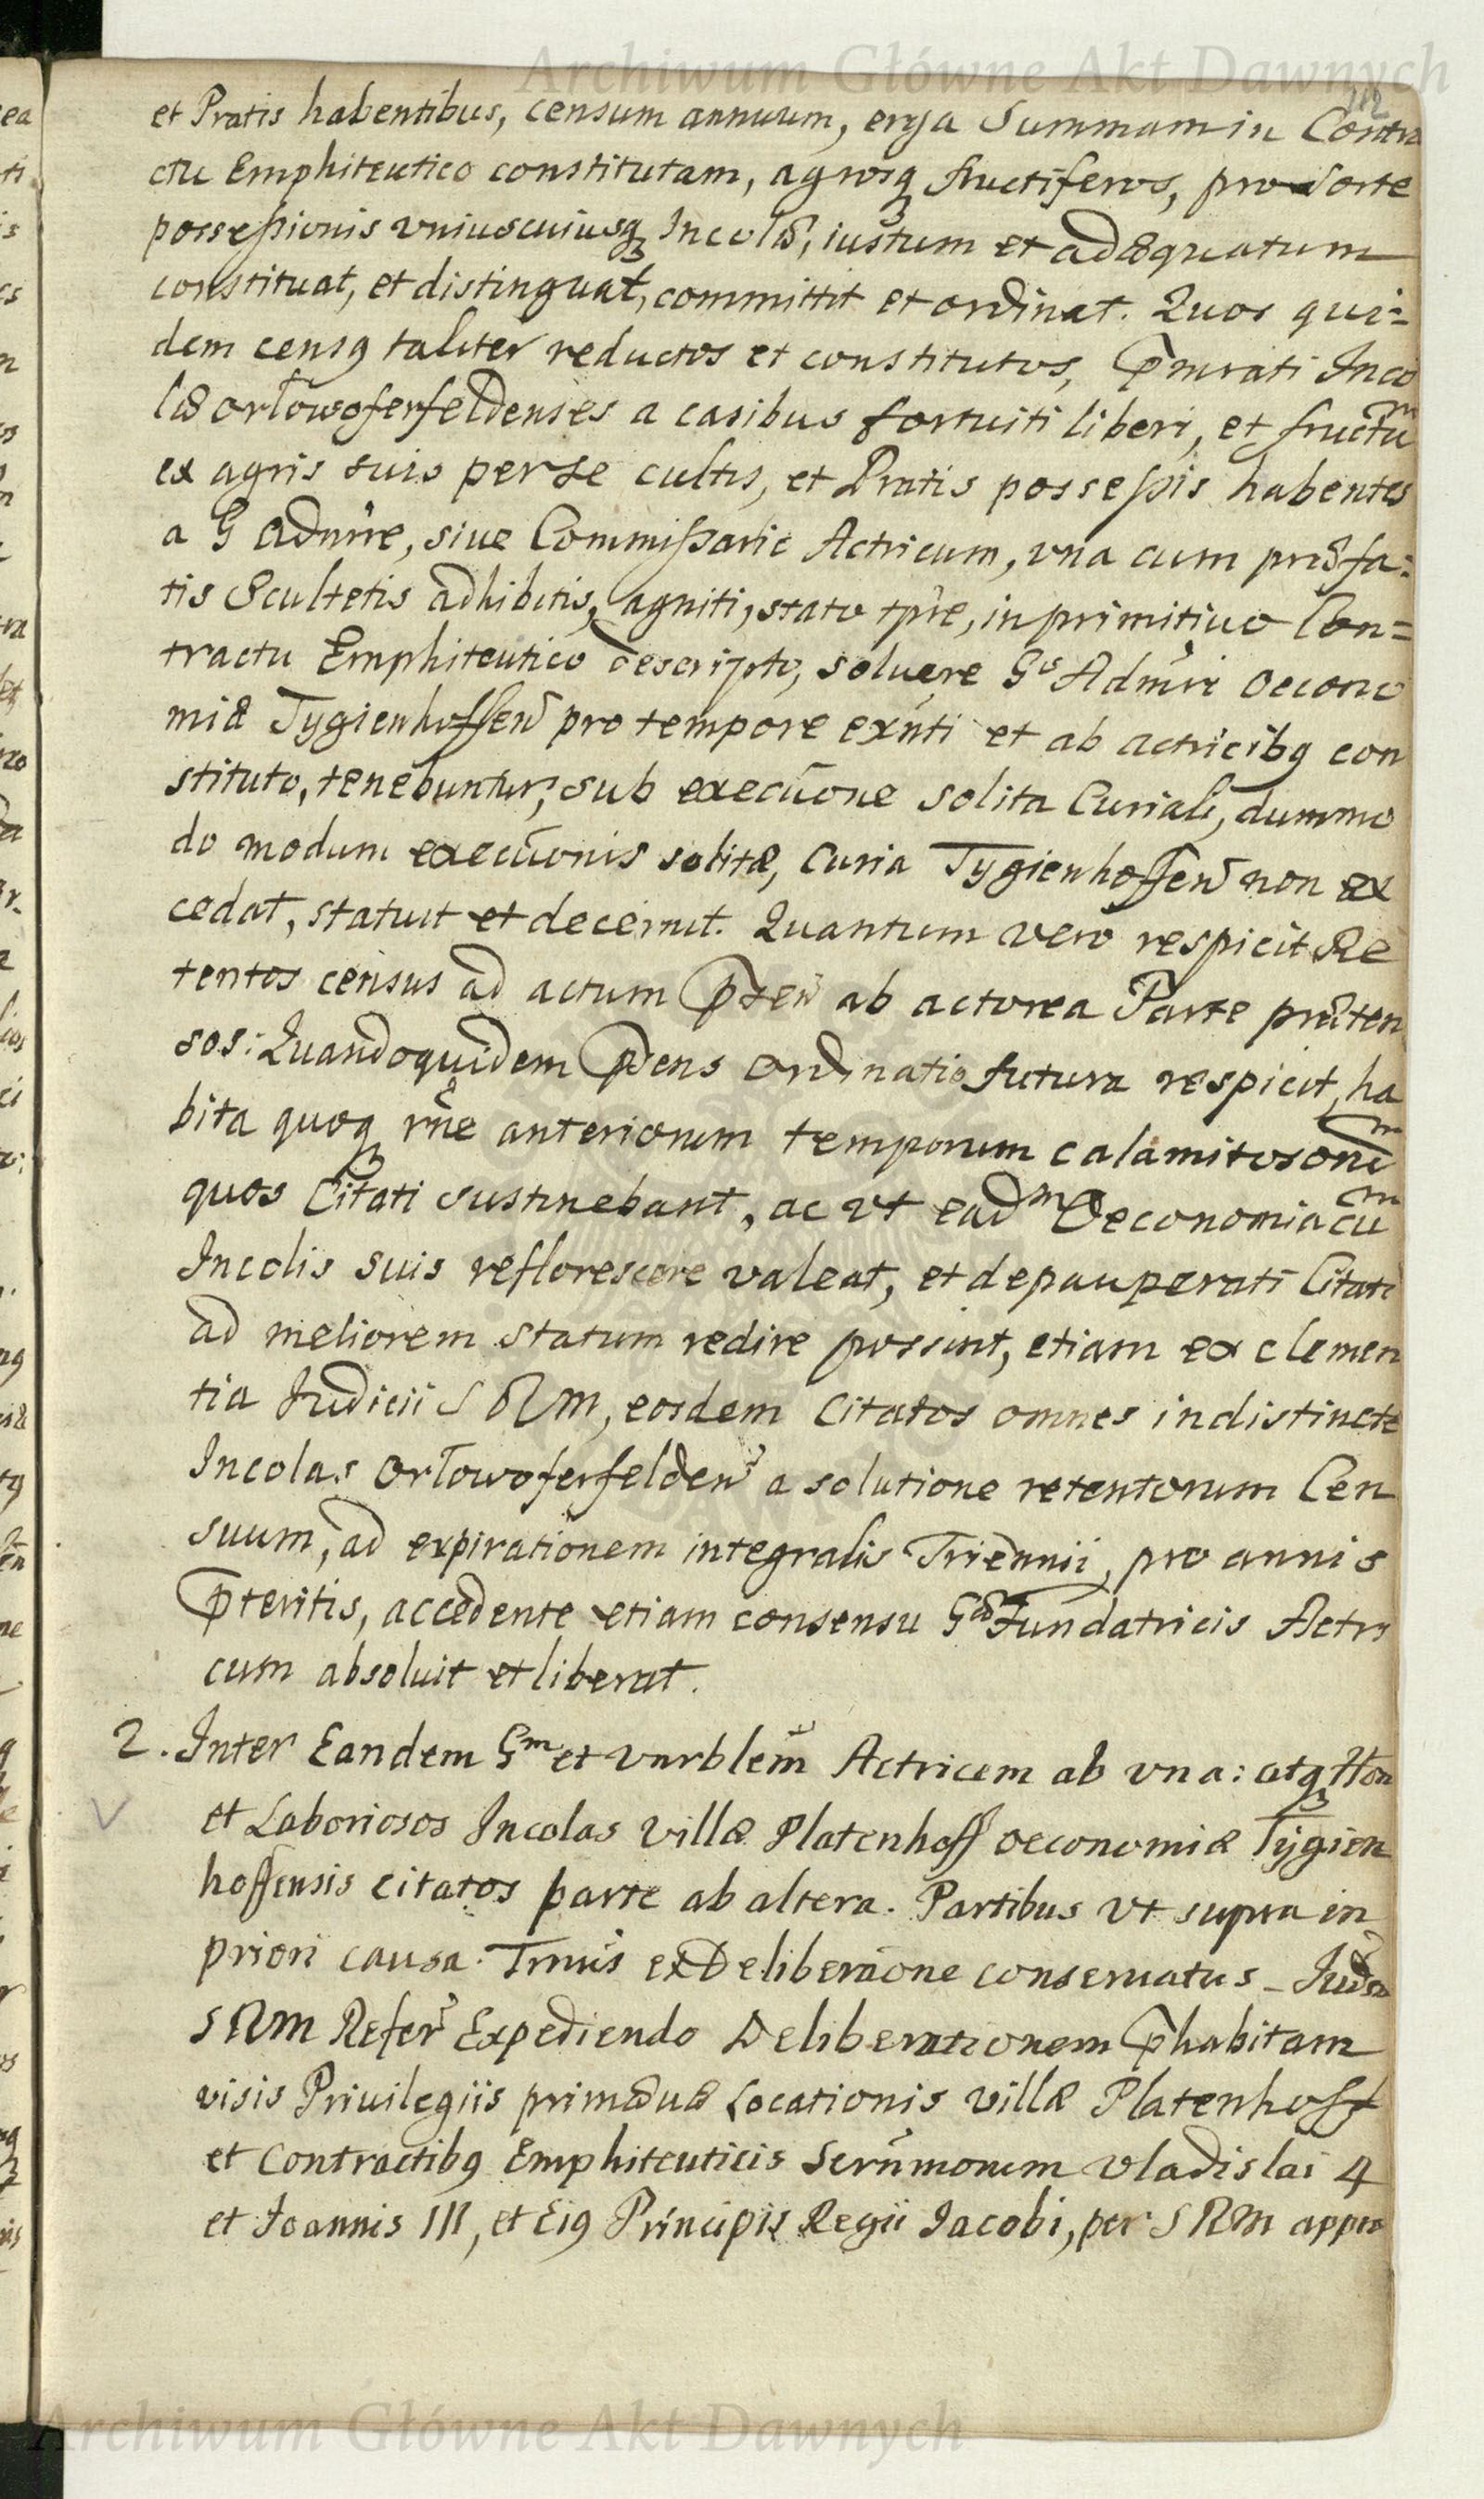 Archiwum Główne Akt Dawnych
112
et Pratis habentibus, censum annuum, erga Summam in Contra
ctu Emphiteutico constitutam, agrosq fructiferos, pro sorte
possessionis vniuscuiusq Incolæ, iustum et adæquatum
constituat, et distinguat, committit et ordinat. Quos qui=
dem censq taliter reductos et constitutos, pmrati Inco
læ orłowoferfeldenses a casibus fortuiti liberi, et fructum
ex agris suis per se cultis, et Pratis possessis habentes
a G Admre, siue Commissario Actricum, vna cum præfa=
tis Scultetis adhibitis, agniti, stato tpre, in primitiuo Con=
tractu Emphiteutico descripto, soluere Gso Admri Oecono
miæ Tygienhoffen pro tempore exnti et ab actricibq con
stituto, tenebuntur, sub executione solita Curiali, dummo
do modum executionis solitæ, Curia Tygienhoffen non ex
cedat, statuit et decernit. Quantum vero respicit Re
tentos census ad actum pten ab actorea Parte præten
sos: Quandoquidem pdens Ordinatio futura respicit, ha
bita quoq rne anteriorum temporum calamitosorum
quos Citati sustinebant, ac vt eadm Oeconomia cum
Incolis suis reflorescere valeat, et depauperati Citati
ad meliorem statum redire possint, etiam ex clemen
tia Judicii S R M, eosdem Citatos omnes indistincte
Incolas Orłowoferfelden a solutione retentorum Cen
suum, ad expirationem integralis Triennii, pro annis
pteritis, accedente etiam consensu Gæ Fundatricis Actri
cum absoluit et liberat.
2. Inter Eandem Gm et vnrblem Actricem ab vna: atq Hon
et Laboriosos Incolas Villæ Platenhoff oeconomiæ Tygien
hoffensis citatos parte ab altera. Partibus vt supra in
priori causa. Trnus ex Deliberaone conseruatus - Judm
S R M Refer Expediendo Deliberationem phabitam
visis Priuilegiis primæuæ Locationis villæ Platenhoff
et Contractibq Emphiteuticis Sernmorum Vladislai 4
et Joannis III, et Eiq Principis Regii Jacobi, per S R M appro
Archiwum Główne Akt Dawnych